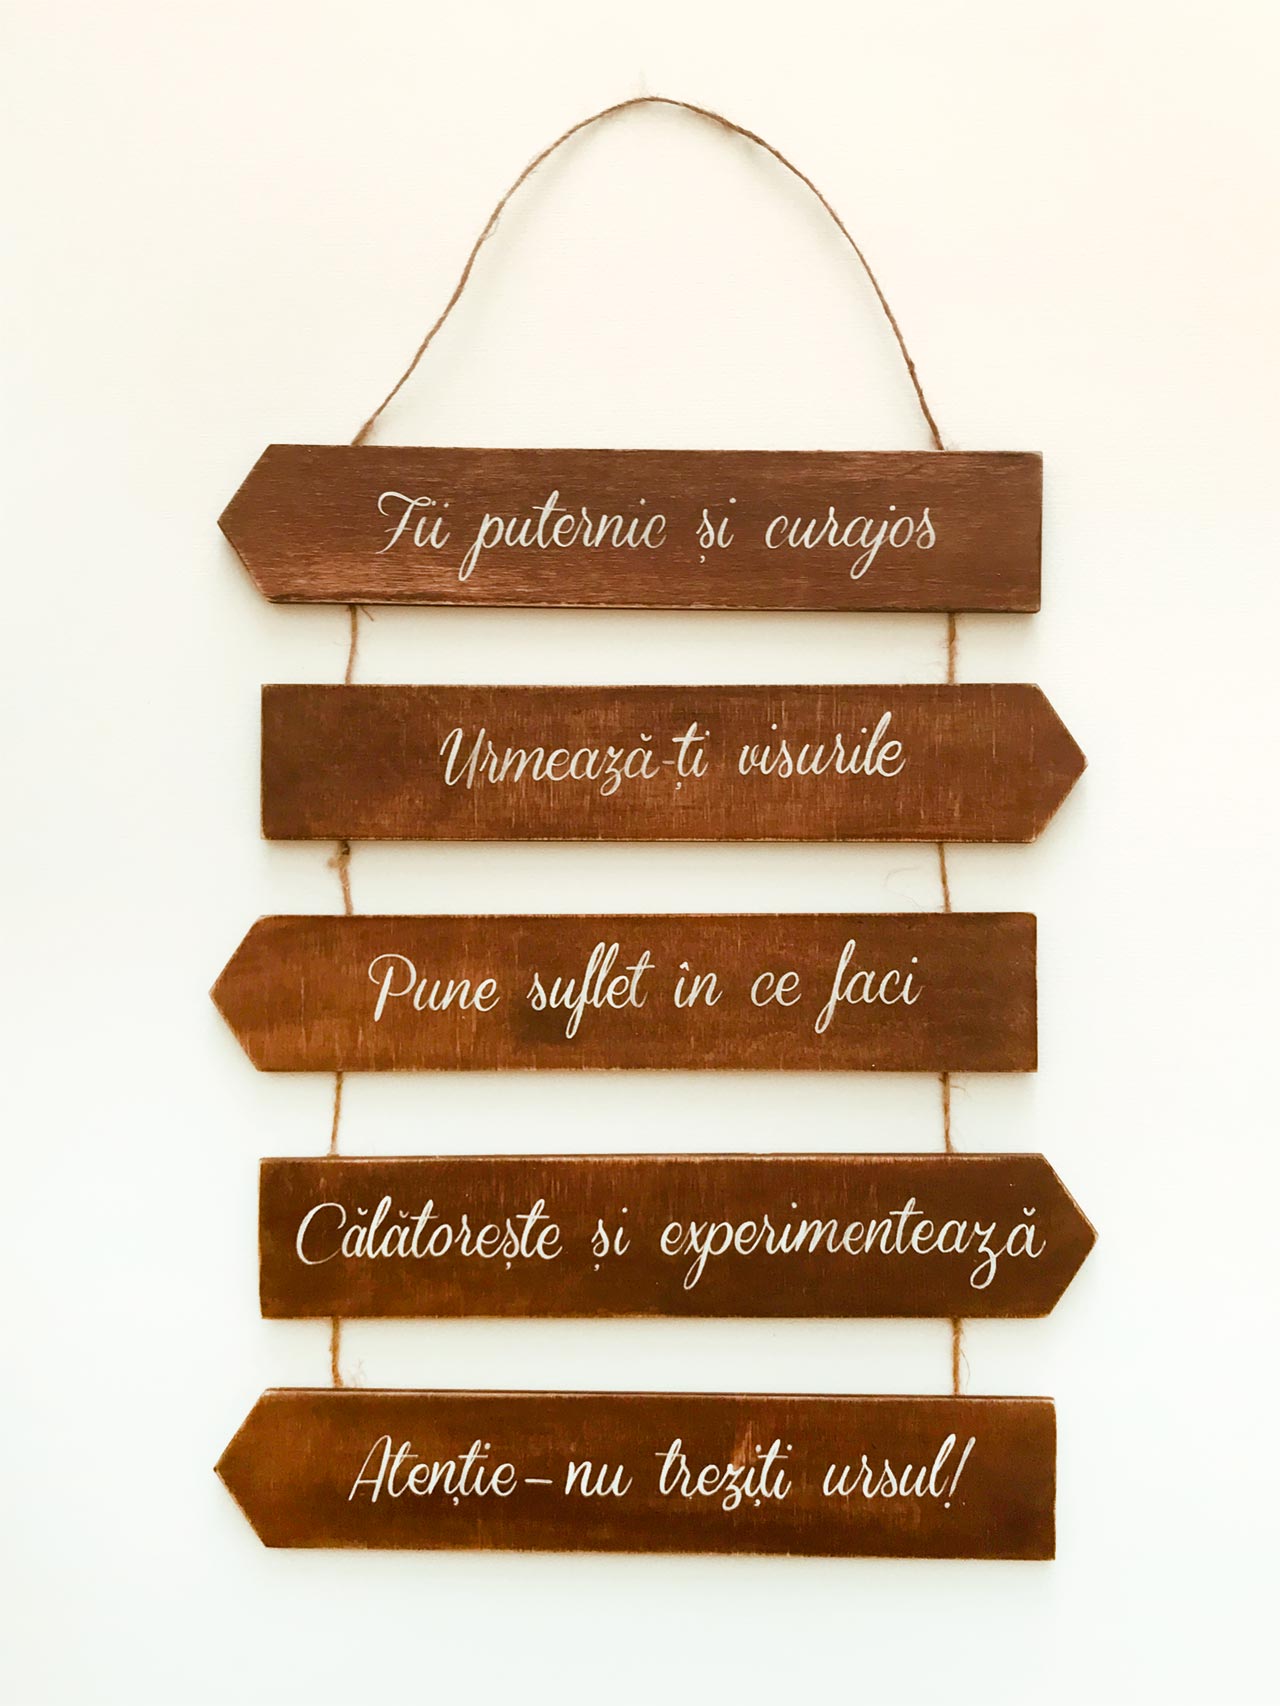 Fii puternic și curajos
Urmează-ți visurile
Pune suflet în ce faci
Călătorește și experimentează
Atenție – nu treziți ursul!